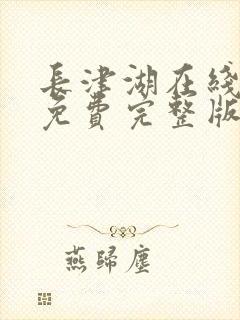 長津湖在綫
免費完整版
燕歸塵